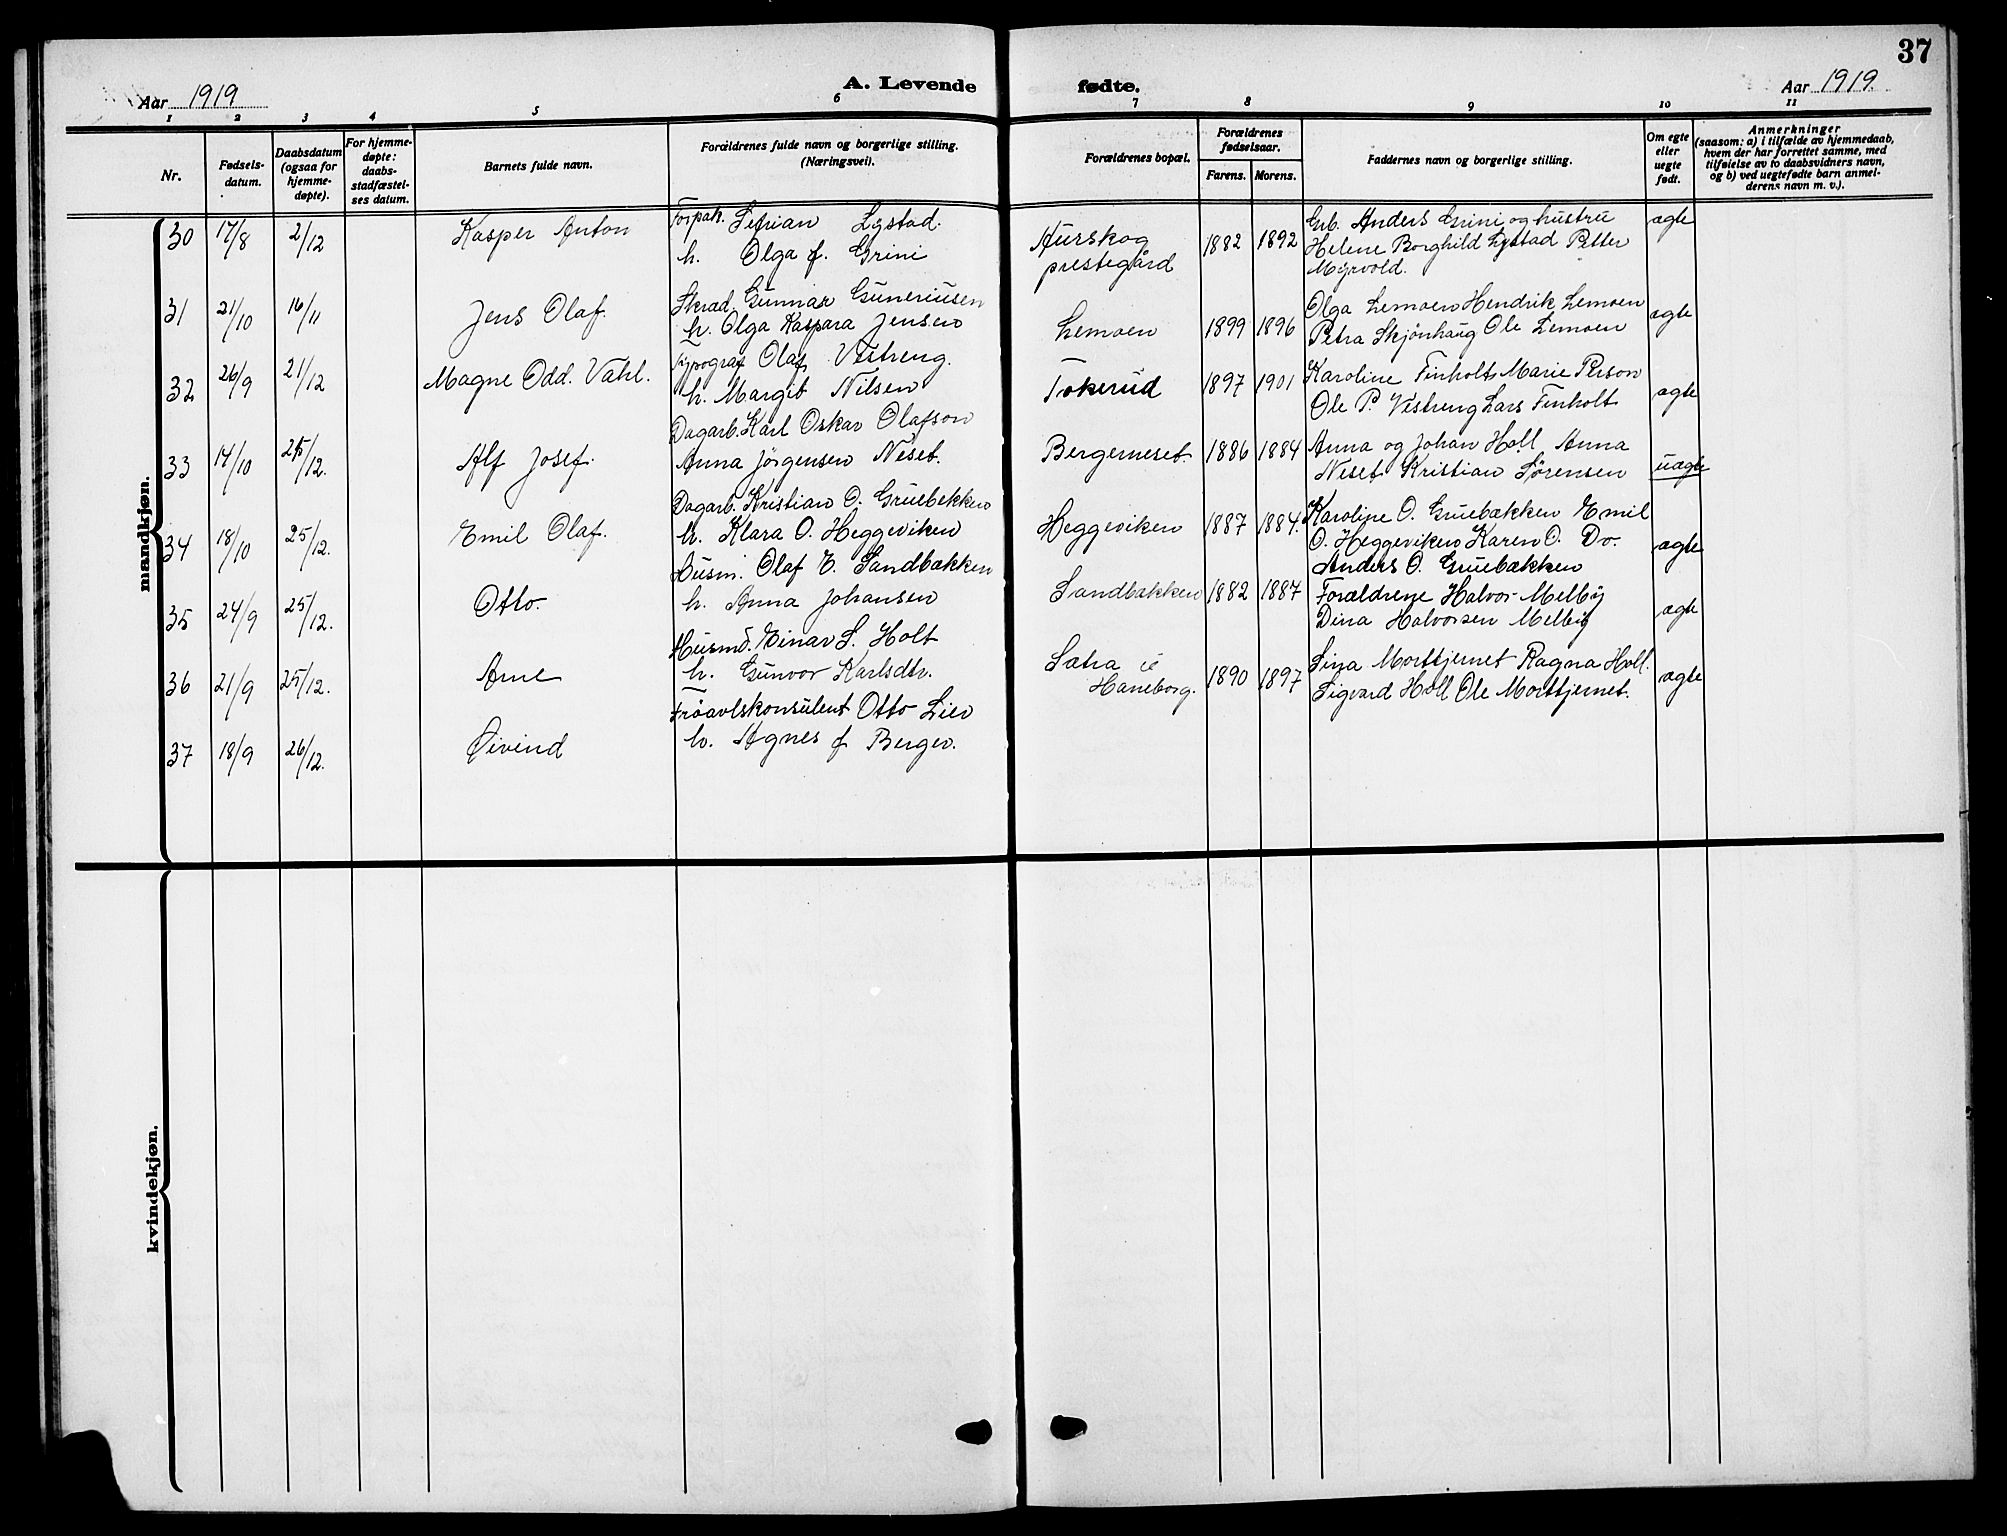 37
Aar 1919
A. Levende fødte.
Aar 1919.
1 2 3 4 5 6 7 8 9 10 11
Nr.
Fødsels-
datum.
Daabsdatum
(ogsaa for
hjemme-
døpte).
For hjemme-
døpte:
daabs-
stadfæstel-
ses datum.
Barnets fulde navn.
Forældrenes fulde navn og borgerlige stilling.
(Næringsvei).
Forældrenes bopæl.
Forældrenes
fødselsaar.
Farens. Morens.
Faddernes navn og borgerlige stilling.
Om egte
eller
uegte
født.
Anmerkninger
(saasom: a) i tilfælde av hjemmedaab,
hvem der har forrettet samme, med
tilføielse av to daabsvidners navn,
og b) ved uegtefødte barn anmel-
derens navn m. v.).
mandkjøn.
30 17/8 2/12 Kasper Anton
Forpak. Lystad.
h. Olga f. Grini
Aurskog
prestegård
1882 1892
Grb. Anders Grini og hustru
Helene Borghild Lystad Petter
Myrvold.
ægte
31 21/10 16/11 Jens Olaf.
Skrad. Gunnar Guneriusen
h. Olga Kaspara Jensen
Lemoen
1899 1896
Olga Lemoen Hendrik Lemoen
Petra Skjönhaug Ole Lemoen
ægte
32 26/9 21/12 Magne Odd. Vahl.
Typograf Olaf Vestreng.
h. Margit Nilsen
Tokerud
1897 1901
Karoline Finholt Marie Person
Ole P. Vestreng Lars Finholt
ægte
33 14/10 25/12. Alf Josef.
Dagarb. Karl Oskar Olafson
Anna Jörgensen Neset.
Bergerneset.
1886 1884
Anna og Johan Holl Anna
Neset Kristian Sørensen
uægte
34 18/10 25/12. Emil Olaf.
Dagarb. Kristian O. Gruebekken
h. Klara O. Heggeviken
Heggeviken
1887 1884.
Karoline O. Gruebækken Emil
O. Heggeviken Karen O. Do.
Anders O. Gruebækken
ægte
35 24/9 25/12. Otto.
Husm. Olaf E. Sandbækken
h. Anna Johansen
Sandbækken
1882 1887
Forældrene Halvor Melby
Dina Halvorsen Melby
ægte
36 21/9 25/12. Arne
Husmd. Einar S. Holt
h. Gunvor Karlsdtr.
Sætra u
Haneborg.
1890 1897
Lina Morttjernet Ragna Holl.
Sigvard Holl Ole Morttjernet.
ægte
37 18/9 26/12. Øivind
Fröavlskonsulent Otto Lier
h. Agnes f Berger.
kvindekjøn.